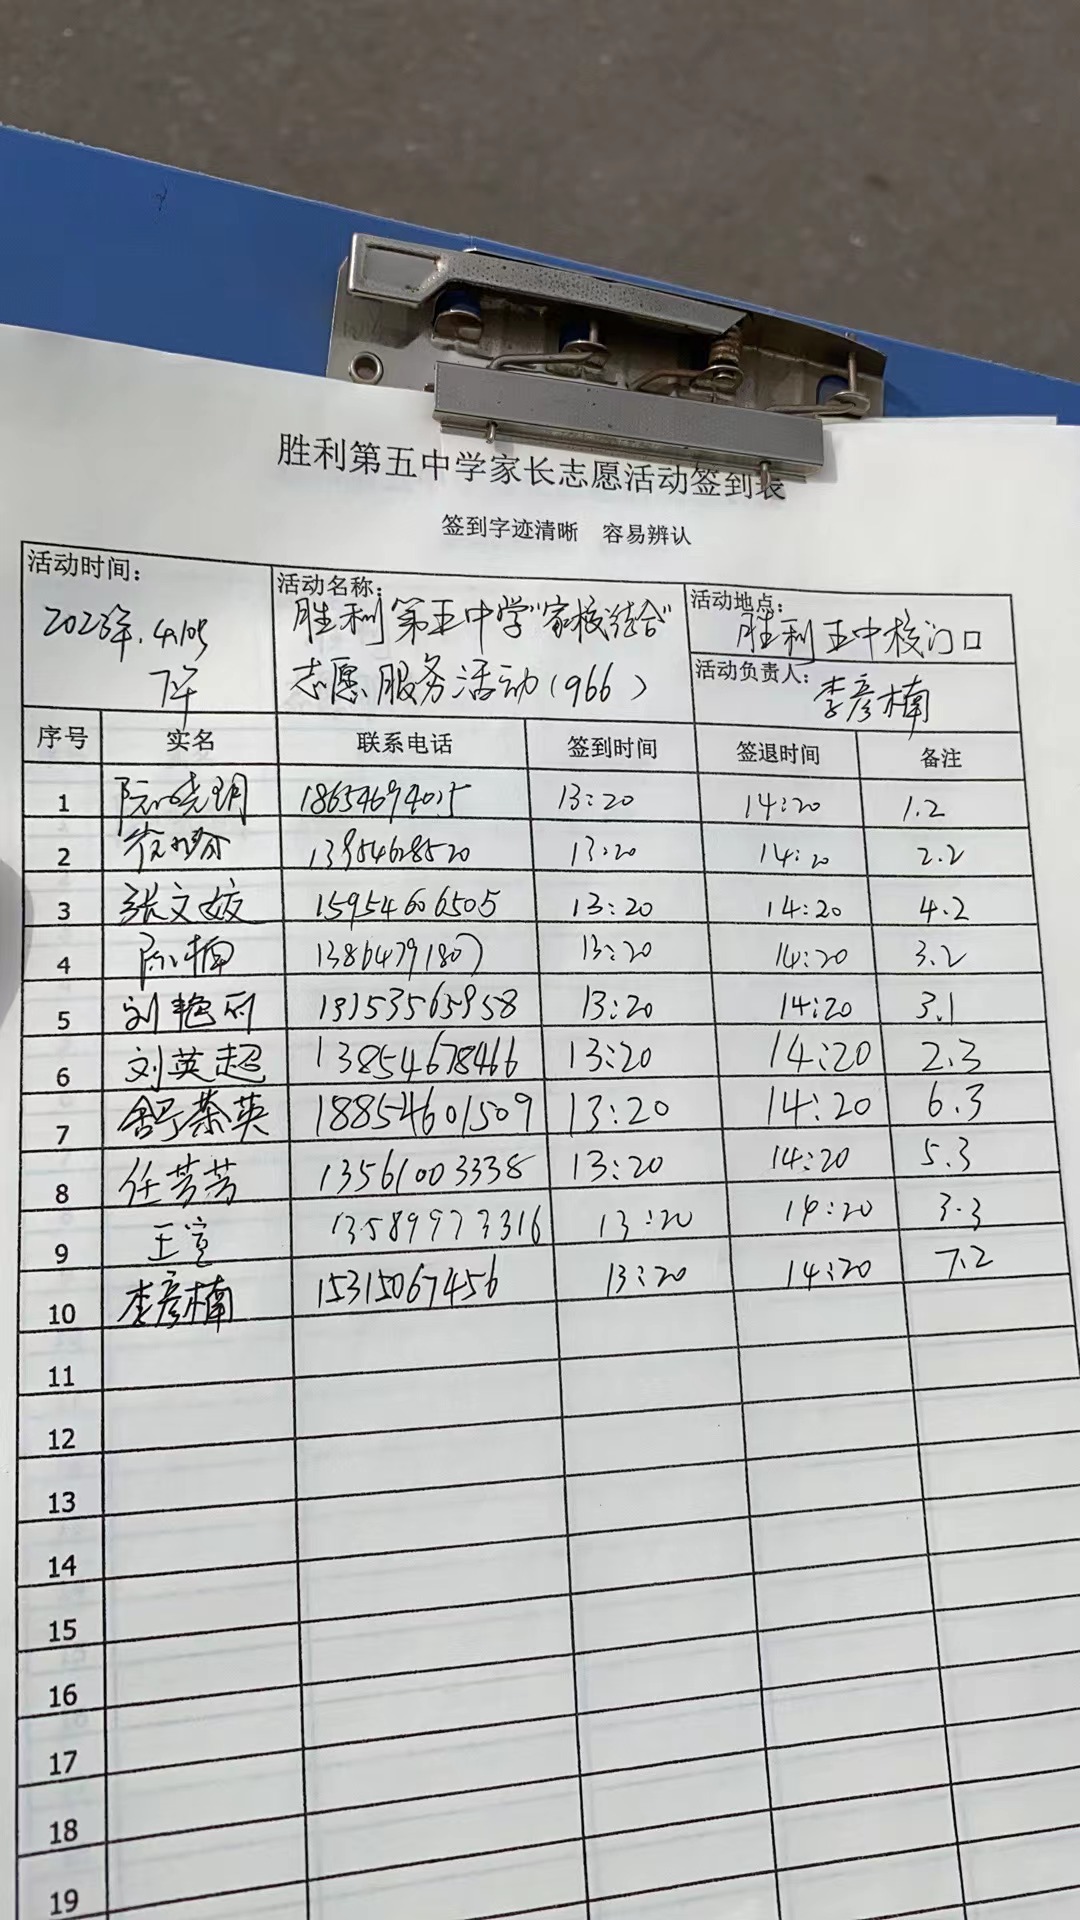 胜利第五中学家长志愿活动签到表
签到字迹清晰 容易辨认
活动时间: 下午
活动名称: 胜利第五中学"家校结合"
志愿服务活动(966)
活动地点: 胜利五中校门口
活动负责人: 李彦楠
序号 实名 联系电话 签到时间 签退时间 备注
1 阮晓玥 13:20 14:20 1.2
2 13954628520 13:20 14:20 2.2
3 张文姣 15954606505 13:20 14:20 4.2
4 陈楠 13864791807 13:20 14:20 3.2
5 刘艳丽 13:20 14:20 3.1
6 刘英超 13854678466 13:20 14:20 2.3
7 舒荣英 18854601509 13:20 14:20 6.3
8 任芳芳 13561003338 13:20 14:20 5.3
9 王宣 13589973316 13:20 14:20 3.3
10 李彦楠 15315067456 13:20 14:20 7.2
11
12
13
14
15
16
17
18
19